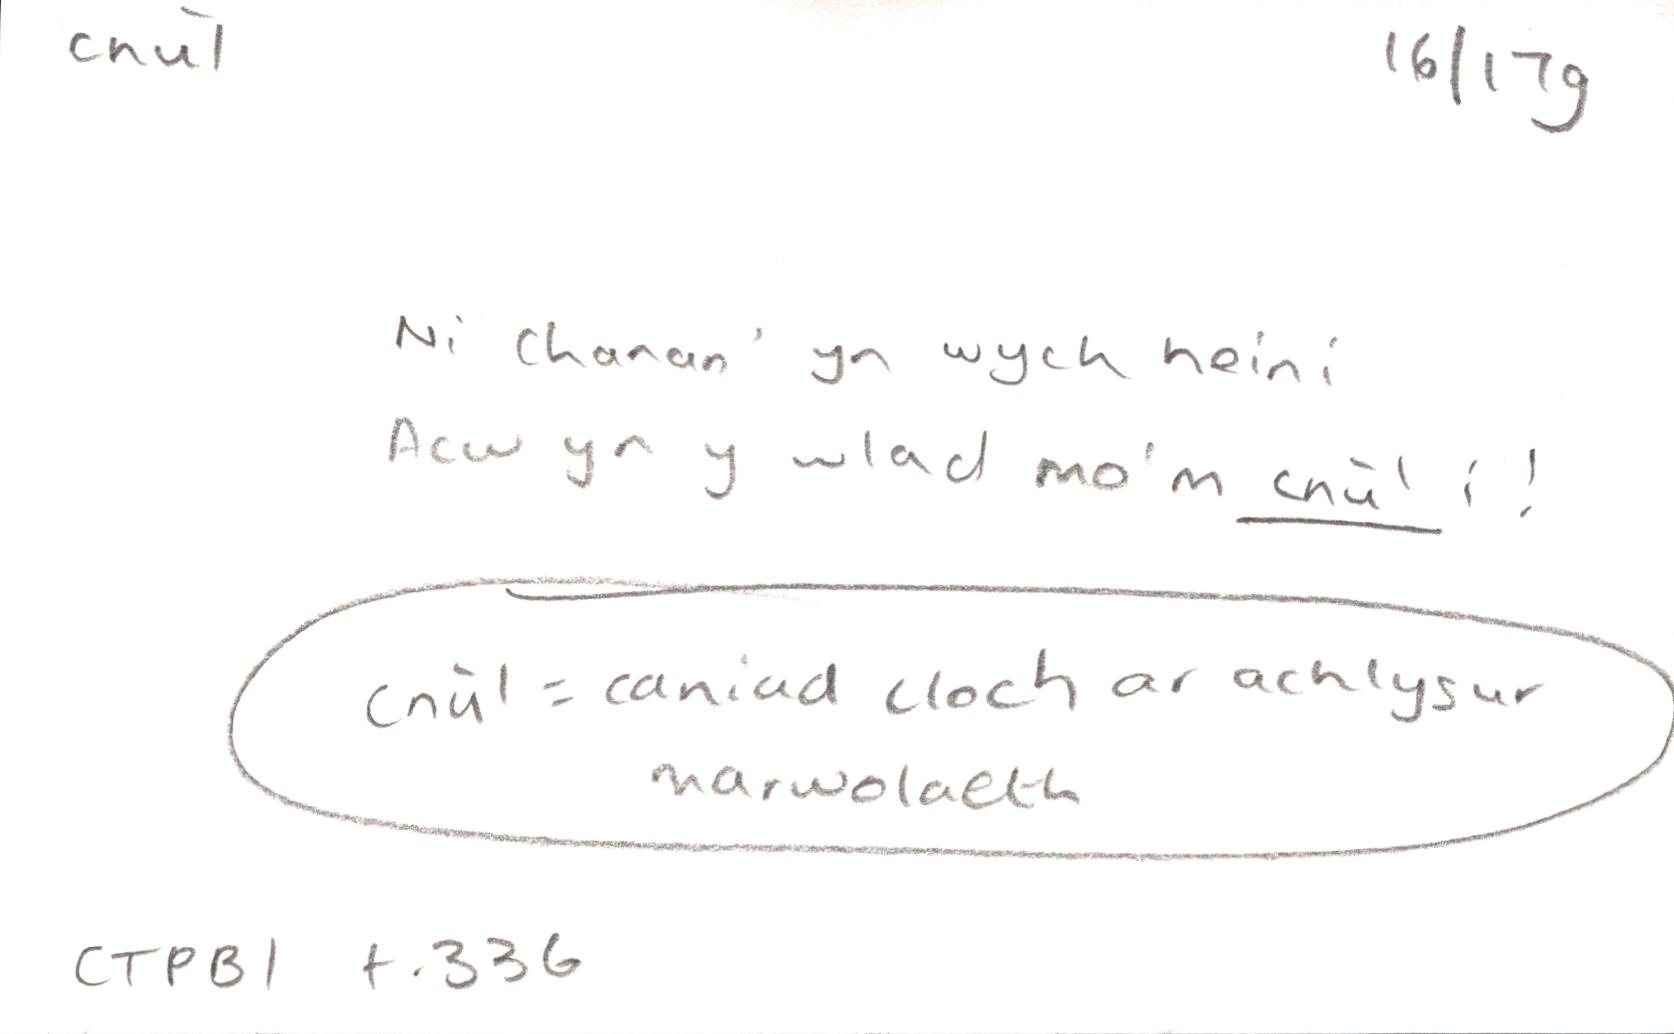 cnùl
16/17g
Ni Chanan' yn wych heini
Acw yn y wlad mo'm cnùl i!
cnùl = caniad cloch ar achlysur
marwolaeth
CTPB1 t.336